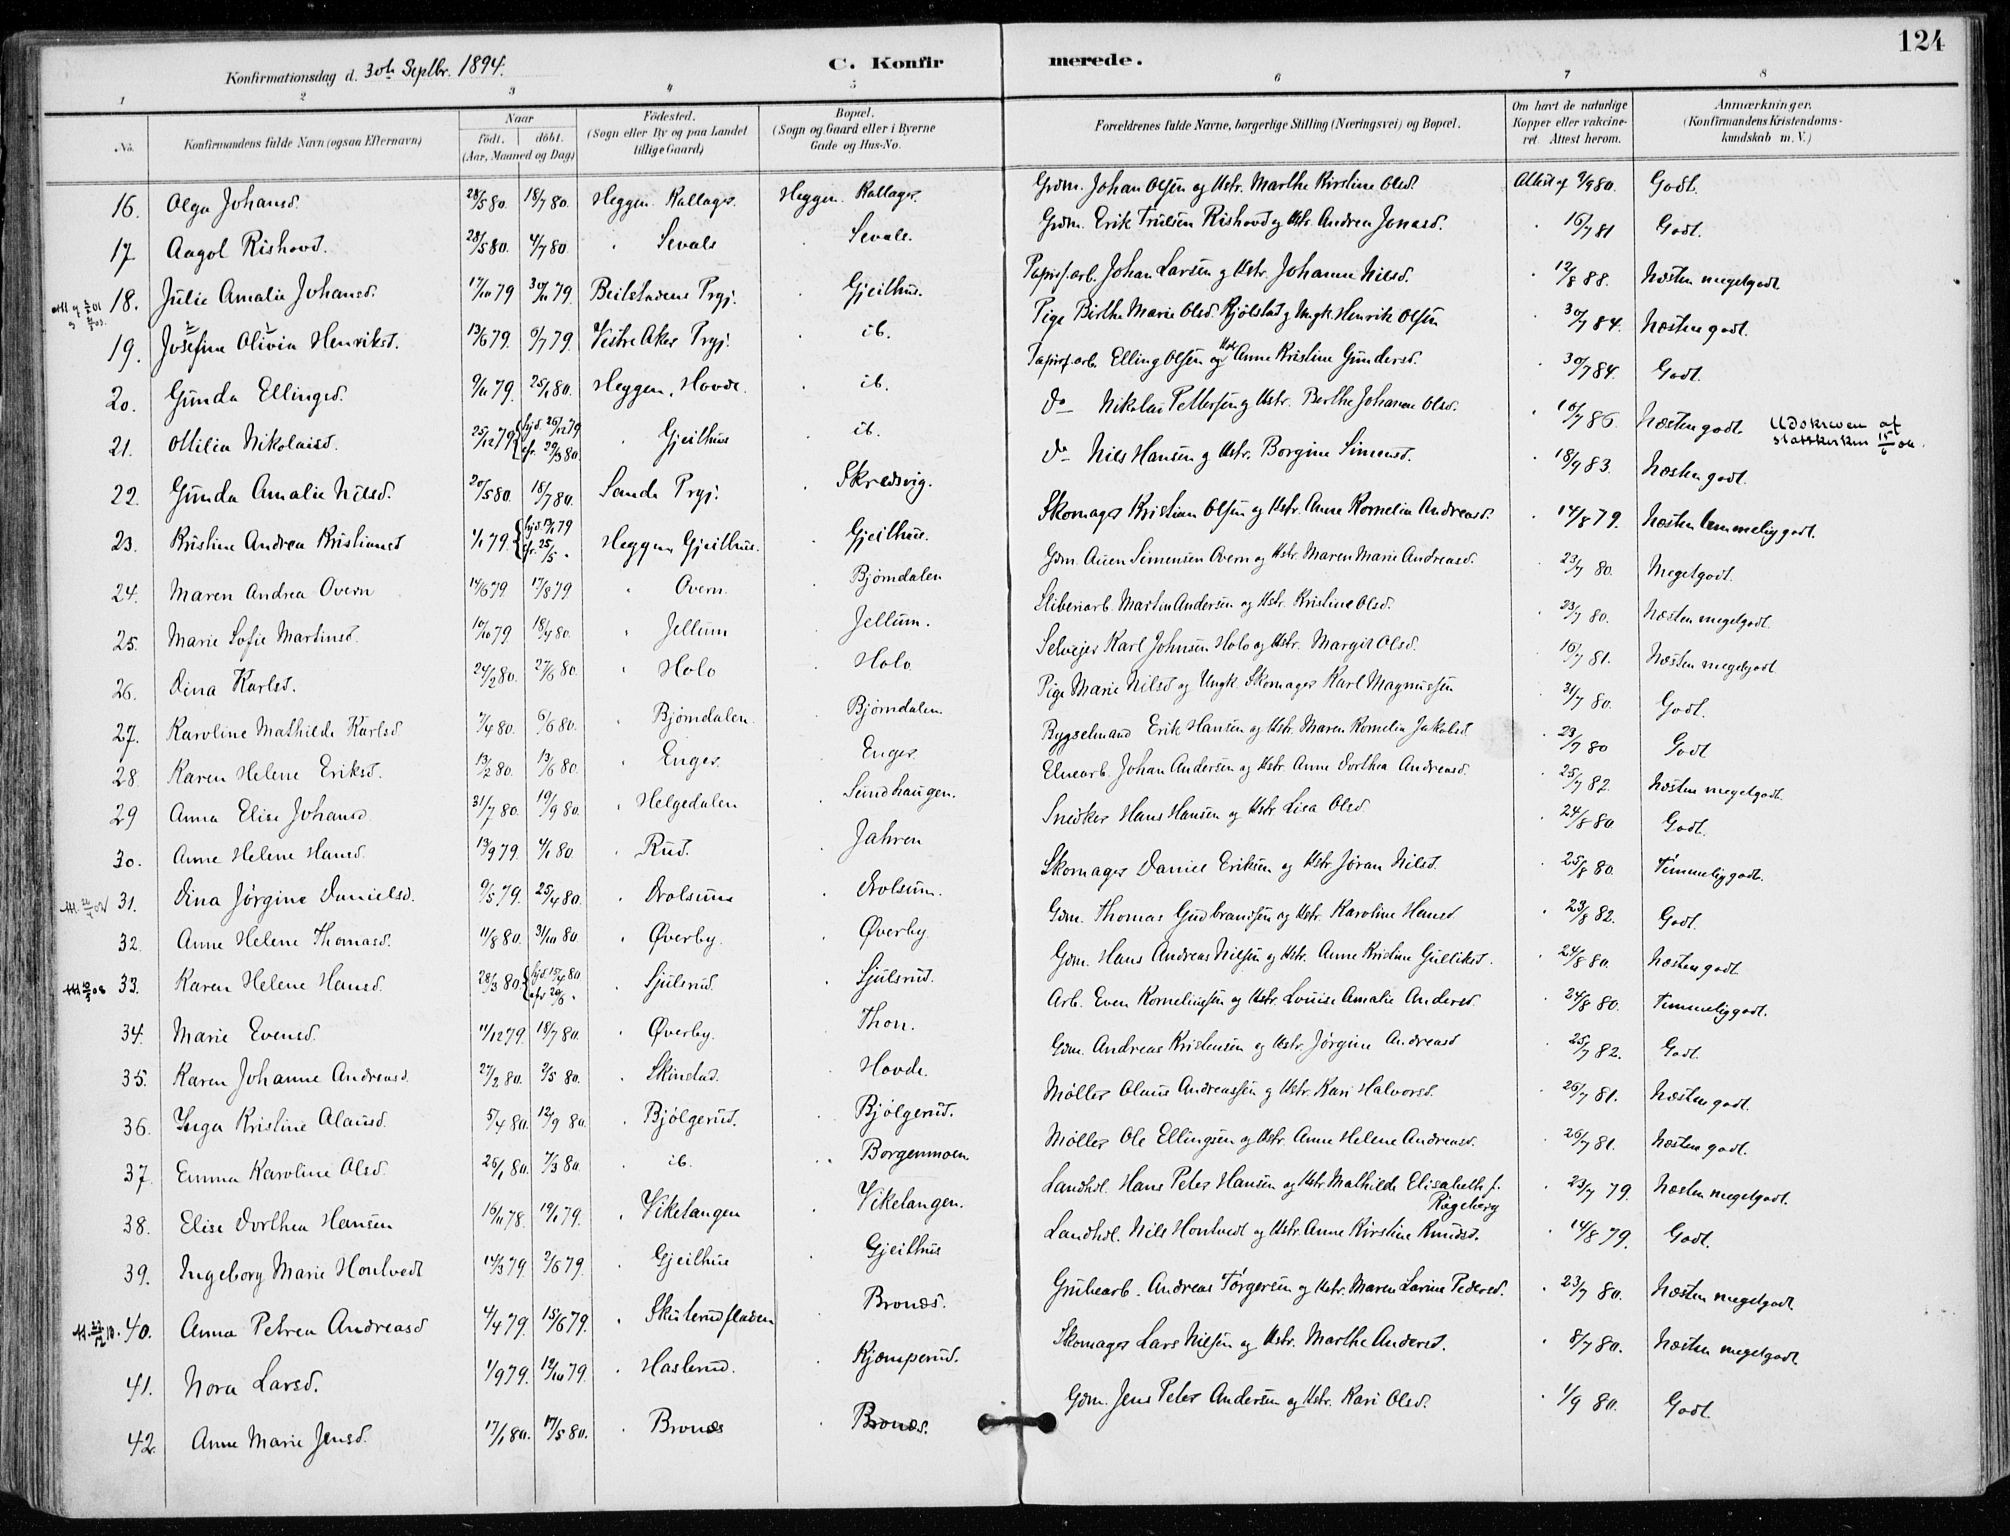 124
Konfirmationsdag d. 30te Septbr. 1894. C. Konfirmerede.
1 2 3 4 5 6 7 8
No. Konfirmandens fulde Navn (ogsaa Efternavn) Naar født. døbt. (Aar, Maaned og Dag) Fødested. (Sogn eller By og paa Landet tillige Gaard) Bopæl. (Sogn og Gaard eller i Byerne Gade og Hus-No. Forældrenes fulde Navne, borgerlige Stilling (Næringsvei) og Bopæl. Om havt de naturlige Kopper eller vakcineret. Attest herom. Anmærkninger. (Konfirmandens Kristendomskundskab m. V.)
16. Olga Johansd. 28/5 80. 18/7 80. Heggen Kallager Heggen Kallager Grdm. Johan Olsen og Hstr. Marthe Kirstine Olsd. Attest af 2/9 80. Godt.
17 Aagot Rishovd. 28/5 80. 4/7 80. " Sevale Sevale. Grdm. Erik Trulsen Rishovd og Hstr. Andrea Jonasd. " 16/7 81 Godt.
18. Julie Amalie Johansd. 17/10 79 30/11 79. Beitstadens Prgj. Gjeithus. Papirf.arb. Johan Larsen og Hstr. Johanne Nilsd. " 12/8 88. Næsten megetgodt
19. Josefine Olivia Henriksd. 13/6 79. 6/7 79. Vestre Aker Prgj. " ib. Pige Birthe Marie Olsd. Kjølstad og Ungk. Henrik Olsen " 30/7 84. Næsten godt.
20. Gunda Ellingsd. 9/11 79. 25/1 80. Heggen, Hovde. " ib. Papirf.arb. Elling Olsen og Hstr. Anne Kristine Gundersd. " 30/7 84. Godt.
21. Ottilia Nikolaisd. 25/12 79 { hjd. 26/12 79 efr. 29/3 80 " Gjeithus " ib. Do Nikolai Pettersen og Hstr. Berthe Johanne Olsd. " 10/7 86. Næsten godt. Udskreven af statskirken 15/6 04.
22. Gunda Amalie Nilsd. 20/5 80. 18/7 80. Sande Prgj. Skredsvig. Do Nils Hansen og Hstr. Borgine Simensd. " 18/9 83. Næsten godt.
23. Kristine Andrea Kristiansd 1/1 79. { efr. 25/5 " Heggen Gjeithus. Gjeithus. Skomager Kristian Olsen og Hstr. Anne Kornelia Andreasd. " 14/8 79. Næsten temmelig godt.
24. Maren Andrea Overn 14/6 79 17/8 79 " Overn " Bjørndalen Gdm. Auen Simensen Overn og Hstr. Maren Marie Andreasd. " 23/7 80. Megetgodt.
25. Marie Sofie Martinsd. 10/10 79. 18/4 80. " Jellum " Jellum. Sliberiarb. Martin Andersen og Hstr. Kristine Olsd. " 23/7 80. Næsten megetgodt.
26. Dina Karlsd. 24/2 80. 27/6 80. " Holo " Holo Selveier Karl Johnsen Holo og Hstr. Margit Olsd. " 16/7 81. Næsten megetgodt
27. Karoline Mathilde Karlsd 7/4 80. 6/6 80. " Bjørndalen. Bjørndalen. Pige Marie Nilsd og Ungk. Skomager Karl Magnussen " 31/7 80. Godt.
28 Karen Helene Eriksd. 13/2 80. 13/6 80. " Enger. Enger. Bygselmand Erik Hansen og Hstr. Maren Kornelia Jakobsd. " 23/7 80 Godt
29 Anna Elise Johansd. 31/7 80. 19/9 80. " Helgedalen " Sundhaugen. Elvearb. Johan Andersen og Hstr. Anne Dorthea Andreasd. " 25/7 82. Næsten megetgodt.
30. Anne Helene Hansd. 13/9 79. 4/1 80. " Rud. " Jahren Snedker Hans Hansen og Hstr. Lisa Olsd. " 24/8 80. Godt.
31. Dina Jørgine Danielsd. 9/5 79. 25/4 80. " Drolsum " Drolsum. Skomager Daniel Eriksen og Hstr. Jøran Nilsd. " 25/8 80. Temmelig godt.
32. Anne Helene Thomasd. 11/8 80. 31/10 80 " Øverby. " Øverby. Gdm. Thomas Gudbrandsen og Hstr. Karoline Hansd " 23/8 82. Godt.
33. Karen Helene Hansd. 28/3 80 { hjd. 15/4 80 efr 20/6 " " Sjulsrud. " Sjulsrud. Gdm. Hans Andreas Nilsen og Hstr. Anne Kristine Gulliksd. " 24/8 80. Næsten godt.
34. Marie Evensd. 11/12 79. 18/7 80. " Øverby. " Thon. Arb. Even Korneliussen og Hstr. Louise Amalie Andersd. " 24/8 80. Temmelig godt.
35. Karen Johanne Andreasd. 27/2 80. 2/5 80. " Skinstad. " Hovde. Gdm. Andreas Kristensen og Hstr. Jørgine Andreasd " 25/7 82. Godt.
36. Inga Kristine Olausd. 5/4 80. 12/9 80. " Bjølgerud. " Bjølgerud. Møller Olaus Andreassen og Hstr. Kari Halvorsd. " 26/7 81. Næsten godt.
37. Emma Karoline Olsd. 26/1 80. 7/3 80. " ib. " Borgenmoen Møller Ole Ellingsen og Hstr. Anne Helene Andreasd. " 26/7 81. Næsten godt.
38. Elise Dorthea Hansen 16/11 78. 19/1 79. " Viketangen " Viketangen. Landhdl. Hans Peter Hansen og Hstr. Mathilde Elisabeth f. Rogeberg " 23/7 79. Næsten megetgodt.
39. Ingeborg Marie Hontvedt 14/3 79. 2/6 79. " Gjeithus " Gjeithus Landhdl. Nils Hontvedt og Hstr. Anne Kirstine Knudsd. " 14/8 79. Godt.
40. Anna Petrea Andreasd 4/4 79. 15/6 79. " Skuterudfladen " Bronæs. Grubearb. Andreas Torgersen og Hstr. Maren Lavine Pedersd. " 23/7 80. Næsten megetgodt.
41. Nora Larsd. 1/9 79. 12/10 79. " Haslerud. " Kjæmperud. Skomager Lars Nilsen og Hstr. Marthe Andersd. " 8/7 80. Næsten megetgodt.
42. Anne Marie Jensd. 17/1 80. 17/5 80. " Bronæs " Bronæs. Gdm. Jens Peter Andersen og Hstr. Kari Olsd. " 1/9 80. Godt.